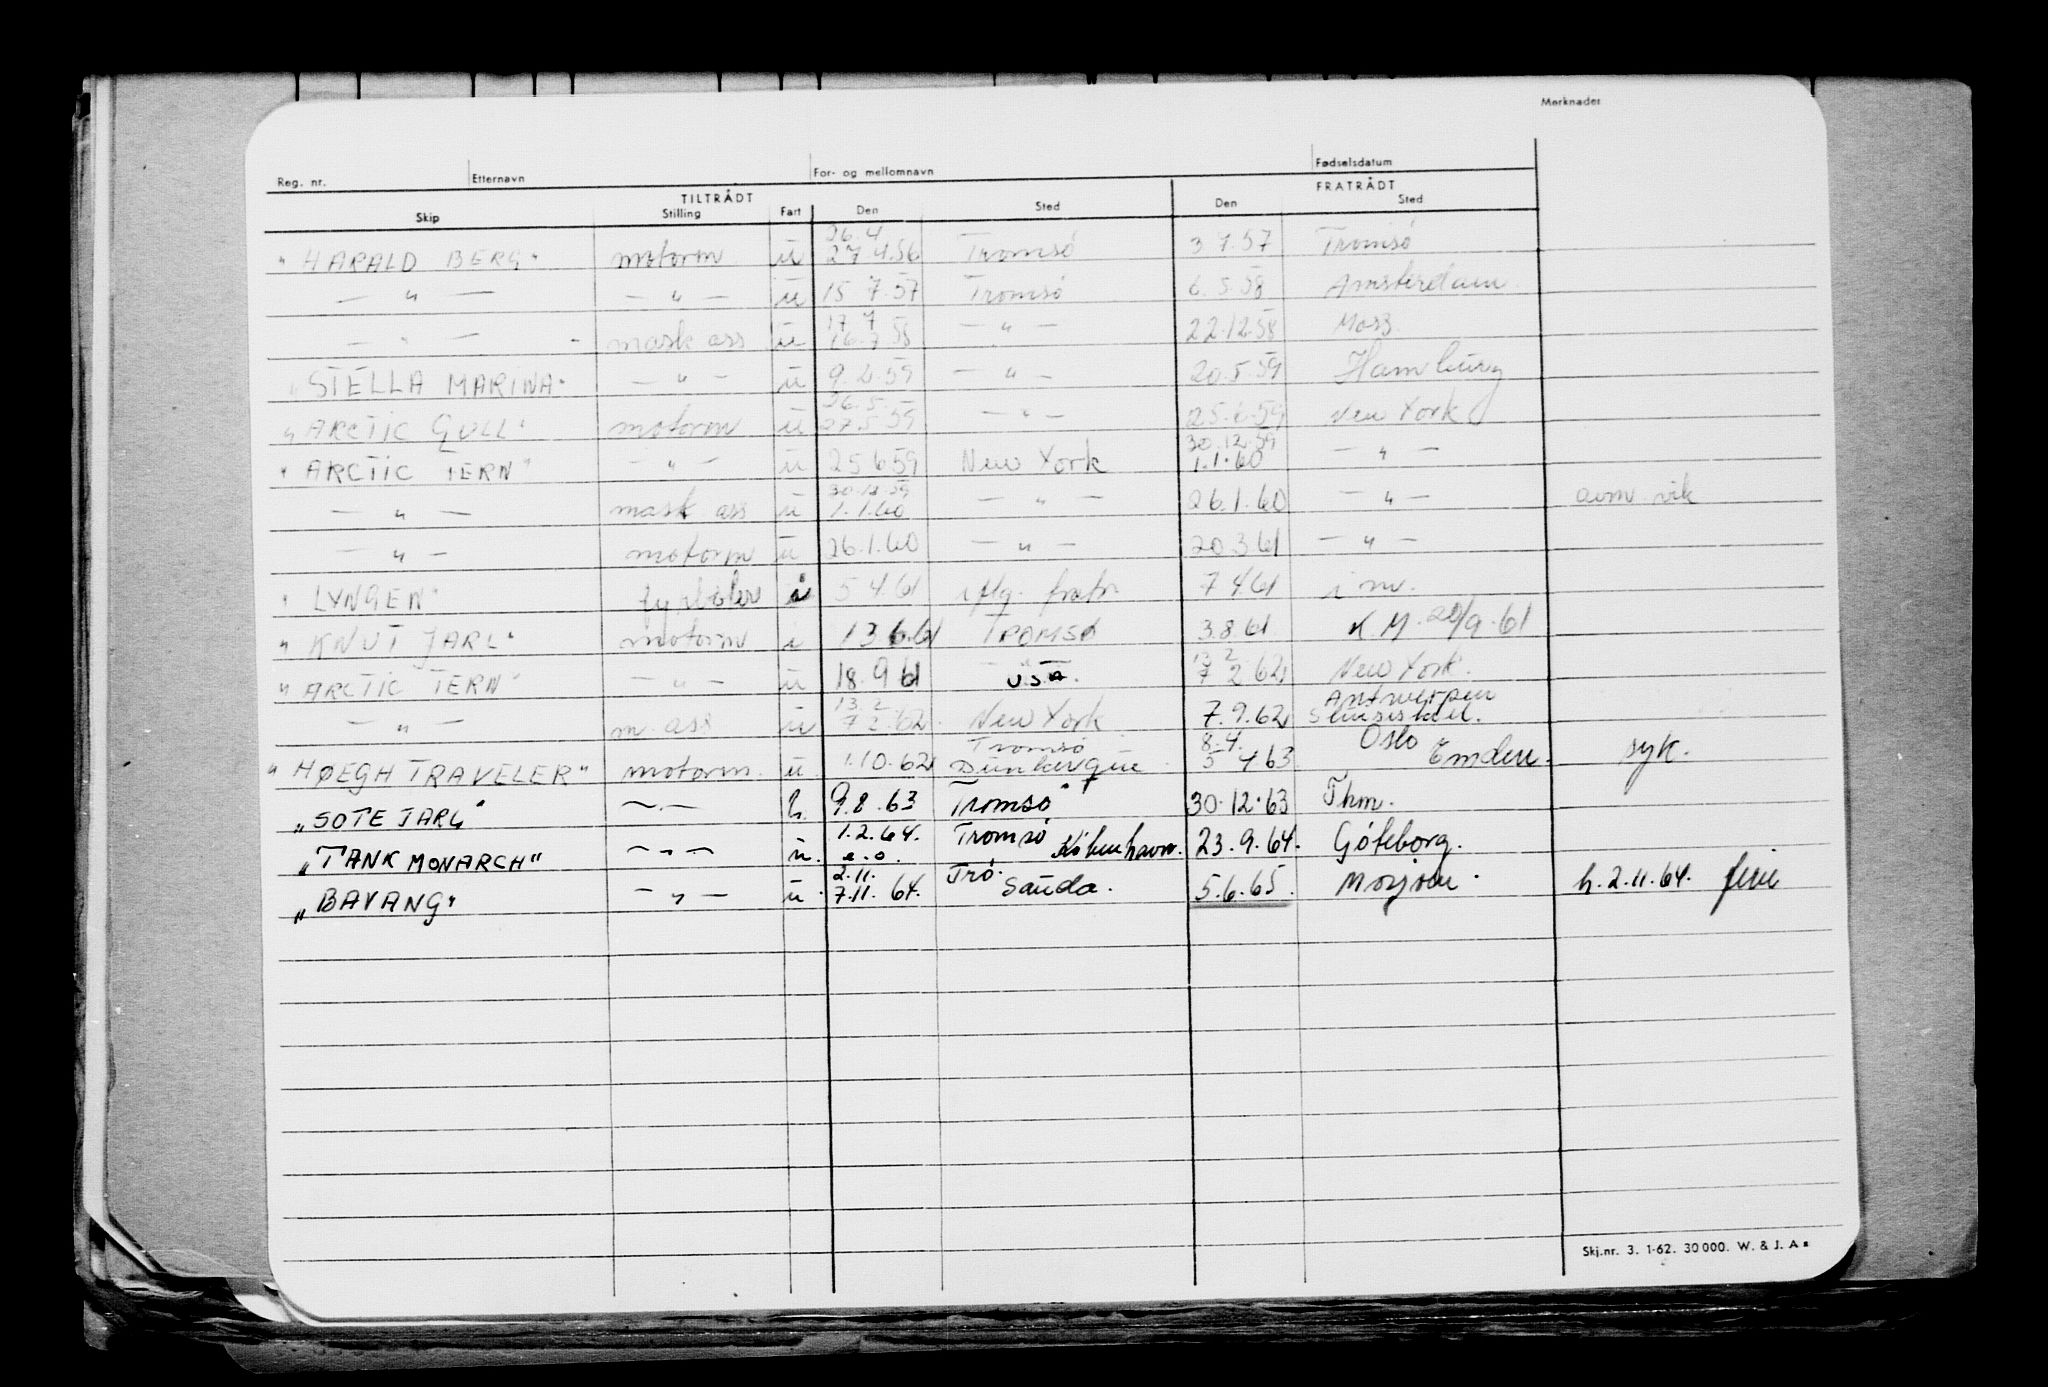 Merknader
Reg. nr. Etternavn For- og mellomnavn Fødselsdatum
TILTRÅDT FRATRÅDT
Skip Stilling Fart Den Sted Den Sted
26.4
"HARALD BERG" motorm u 27 4.56 Tromsö 3 7.57 Tromsö
— " — — " — u 15 7.57 Tromsö 6.5.58 Amsterdam.
17 7
— " — mask ass u 16.7.58 — " — 22.12.58 Moss.
"STELLA MARINA" — " — u 9.2.59 — " — 20.5.59 Hamburg
26.5.
"ARCTIC GULL" motorm u 27.5 59 — " — 25.6.59 New York
30.12.59
"ARCTIC TERN" — " — u 25 6 59 New York 1.1.60 — " —
30.12.59
— " — mask ass u 1.1.60 — " — 26.1.60 — " — avm. vik
— " — motorm u 26.1.60 — " — 20.3 61 — " —
"LYNGEN" fyrbøter i 5 4.61 iflg. fratr. 7 4.61 i m.
"KNUT JARL" motorm i 13 6.61 TROMSÖ 3.8.61 K.M. 20/9.61
13 2
"ARCTIC TERN" — " — u 18.9 61 U.S.A. 7 2 62 New York.
13.2 Antwerpen
— " — m. ass u 7 2.62 New York. 7.9.62 Sluiskil.
Tromsö 8.4. Oslo
"HØEGH TRAVELER" motorm. u. 1.10.62 Dunkerque. 5 4 63 Emden. syk.
"SOTE JARL" — " — h. 9.8.63 Tromsö 30.12.63 Thm.
1.2.64. Tromsö
"TANK MONARCH" — " — u. e.o. Köbenhavn. 23.9.64. Göteborg.
2.11. Trö.
"BAVANG" — " — u. 7.11.64. Sauda. 5.6.65. Mosjøen. h.2.11.64.
Skj.nr. 3. 1-62. 30 000. W. & J. As